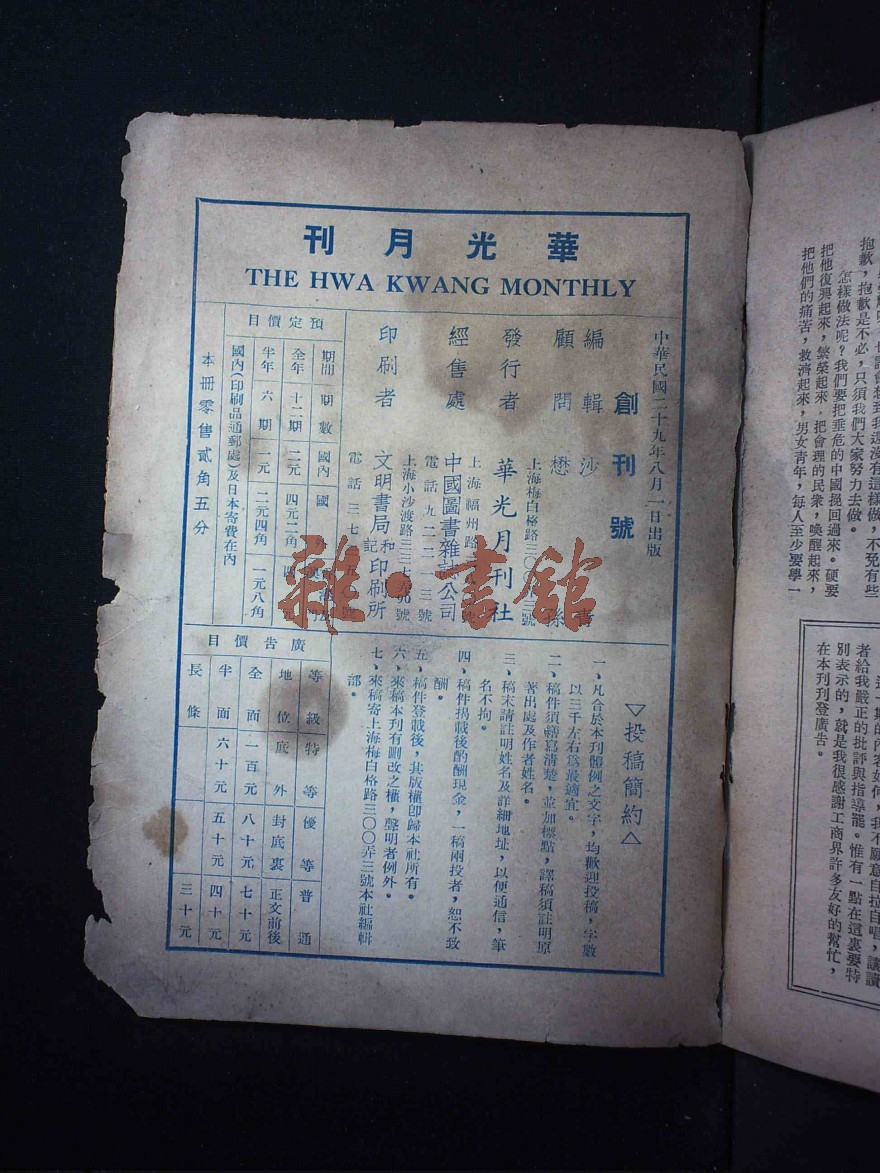 華光月刊
THE HWA KWANG MONTHLY
中華民國二十九年八月一日出版
創刊號
編輯 沙 青
顧問 懋 孫
上海梅白格路三〇〇弄三號
發行者 華光月刊社
上海福州路
經售處 中國圖書雜誌公司
電話九二二 三號
上海小沙渡路 號
印刷者 文明書局和記印刷所
電話三七 號
預定價目
期間 期數 國內 國
全年 十二期 二元 四元二角 四 元
半年 六期 一元 二元四角 一元八角
國內(印刷品通郵處)及日本寄費在內
本冊零售貳角五分
▽投稿簡約△
一、凡合於本刊體例之文字，均歡迎投稿，字數
以三千左右爲最適宜。
二、稿件須繕寫清楚，並加標點，譯稿須註明原
著出處及作者姓名。
三、稿末請註明姓名及詳細地址，以便通信，筆
名不拘。
四、稿件揭載後酌酬現金，一稿兩投者，恕不致
酬。
五、稿件登載後，其版權卽歸本社所有。
六、來稿本刊有刪改之權，聲明者例外。
七、來稿寄上海梅白格路三〇〇弄三號本社編輯
部。
廣告價目
等級 特等 優等 普通
地位 底外 封底裏 正文前後
全面 一百元 八十元 七十元
半面 六十元 五十元 四十元
長條 三十元
抱歉，抱歉是不必，只須我們大家努力去做。
怎樣做法呢？我們要把垂危的中國挽回過來。硬要
把他復興起來，繁榮起來，把會理的民衆，喚醒起來，
把他們的痛苦，救濟起來，男女青年，每人至少要學一
這一期的內容如何，我不願意自拉自唱，讓讀
者給我嚴正的批評與指導罷。惟有一點在這裏要特
別表示的，就是我很感謝工商界許多友好的幫忙，
在本刊刊登廣告。
雜·書館